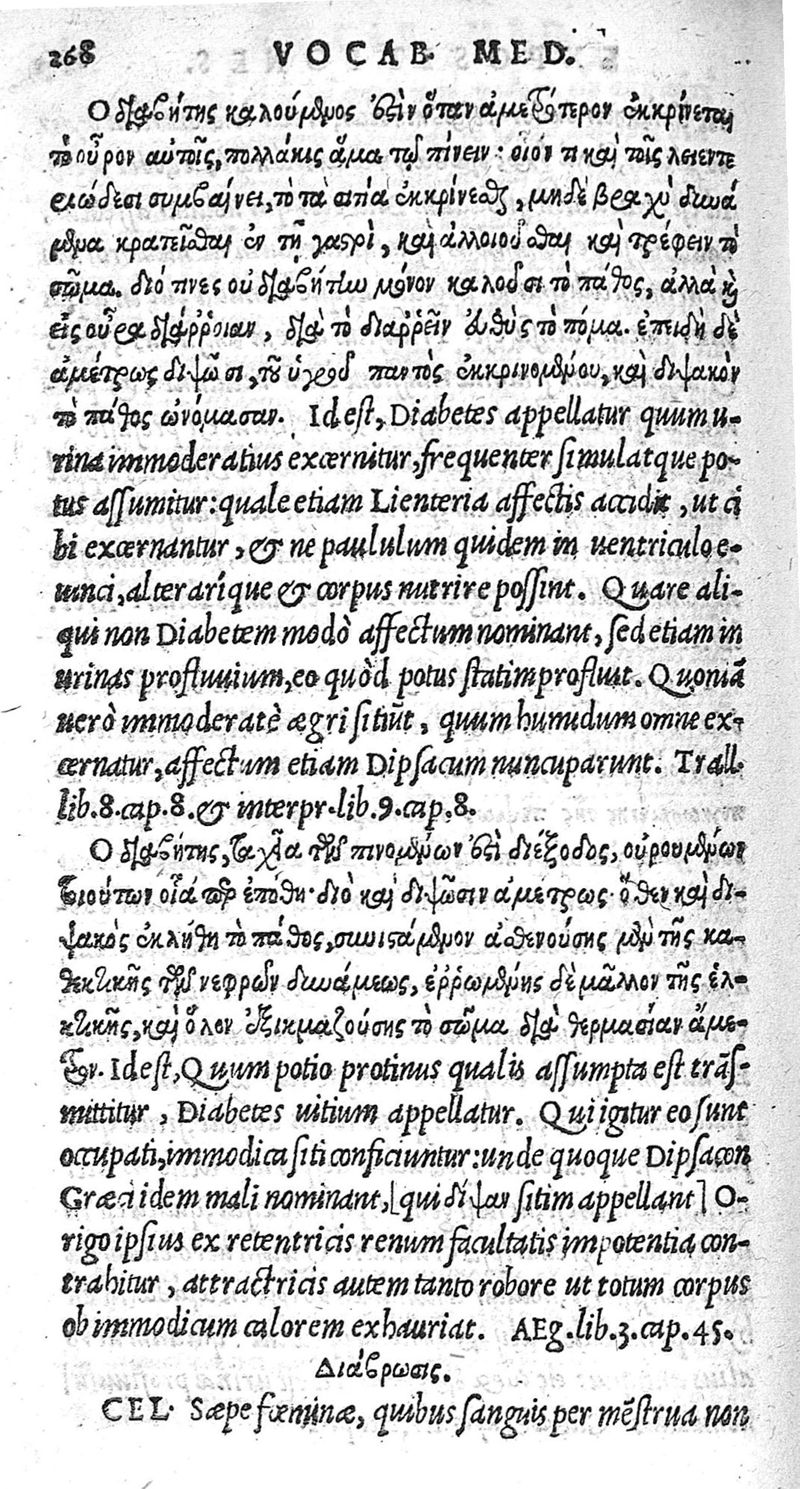 268 VOCAB. MED.
Ο διαβήτης καλούμενος ἐστὶν ὅταν ἀμετρότερον ἐκκρίνεται
τὸ οὖρον αὐτοῖς, πολλάκις ἅμα τῷ πίνειν: οἷόν τι καὶ τοῖς λειεντε
ριώδεσι συμβαίνει, τὸ τὰ σιτία ἐκκρίνεσθαι, μηδὲ βραχὺ δυνά
μενα κρατεῖσθαι ἐν τῇ γαστρὶ, καὶ ἀλλοιοῦσθαι καὶ τρέφειν τὸ
σῶμα. διό τινες οὐ διαβήτην μόνον καλοῦσι τὸ πάθος, ἀλλὰ καὶ
εἰς οὖρα διάῤῥοιαν, διὰ τὸ διαῤῥεῖν εὐθὺς τὸ πόμα. ἐπειδὴ δὲ
ἀμέτρως διψῶσι, τοῦ ὑγροῦ παντὸς ἐκκρινομένου, καὶ διψακὸν
τὸ πάθος ὠνόμασαν. Id est, Diabetes appellatur quum u-
rina immoderatius excernitur, frequenter simulatque po-
tus assumitur: quale etiam Lienteria affectis accidit, ut ci
bi excernantur, & ne paululum quidem in uentriculo e-
uinci, alterarique & corpus nutrire possint. Quare ali-
qui non Diabetem modò affectum nominant, sed etiam in
urinas profluuium, eo quòd potus statim profluit. Quoniã
uerò immoderatè ægri sitiũt, quum humidum omne ex-
cernatur, affectum etiam Dipsacum nuncuparunt. Trall.
lib.8.cap.8. & interpr.lib.9.cap.8.
Ο διαβήτης, ταχεῖα τῶν πινομένων ἐστὶ διέξοδος, οὐρουμένων
τοιούτων οἷά περ ἐπόθη· διὸ καὶ διψῶσιν ἀμέτρως· ὅθεν καὶ δι-
ψακὸς ἐκλήθη τὸ πάθος, συνιστάμενον ἀσθενούσης μὲν τῆς κα-
θεκτικῆς τῶν νεφρῶν δυνάμεως, ἐῤῥωμένης δὲ μᾶλλον τῆς ἑλ-
κτικῆς, καὶ ὅλον ἐξικμαζούσης τὸ σῶμα διὰ θερμασίαν ἄμε-
τρον. Id est, Quum potio protinus qualis assumpta est trãs-
mittitur, Diabetes uitium appellatur. Qui igitur eo sunt
occupati, immodica siti conficiuntur: unde quoque Dipsacon
Græci idem mali nominant, [qui δίψαν sitim appellant] O-
rigo ipsius ex retentricis renum facultatis impotentia con-
trahitur, attractricis autem tanto robore ut totum corpus
ob immodicum calorem exhauriat. AEg.lib.3.cap.45.
Διάβρωσις.
CEL. Sæpe fœminæ, quibus sanguis per mẽstrua non